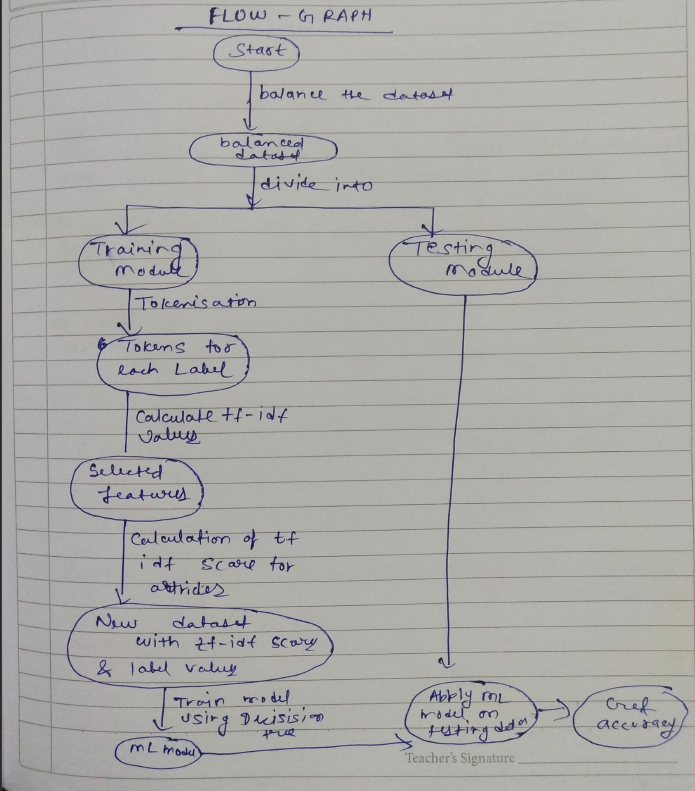 FLOW - GRAPH
Start
balance the dataset
balanced
dataset
divide into
Training
Module
Testing
Module
Tokenisation
Tokens for
each Label
Calculate tf-idf
values
Selected
features
Calculation of tf
idf score for
New dataset
with tf-idf score
& label value
Train model
using Decisision
tree
ML model
Apply ML
model on
testing data
accuracy
Teacher's Signature